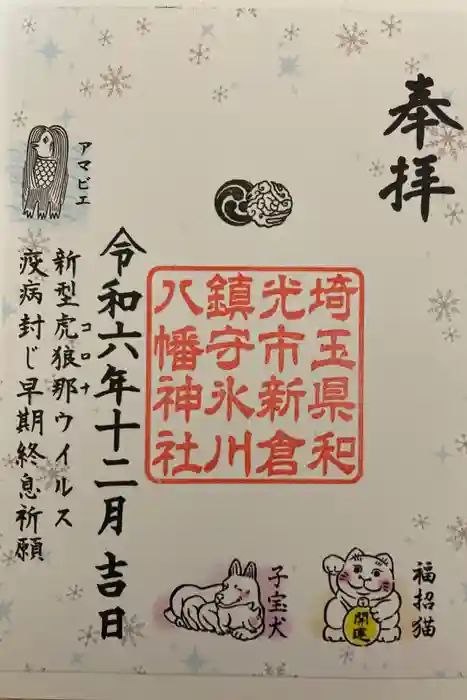 奉拝
埼玉県和
光市新倉
鎮守氷川
八幡神社
令和六年十二月吉日
新型虎狼那ウイルス
コロナ
疫病封じ早期終息祈願
アマビエ
子宝犬
福招猫
開運